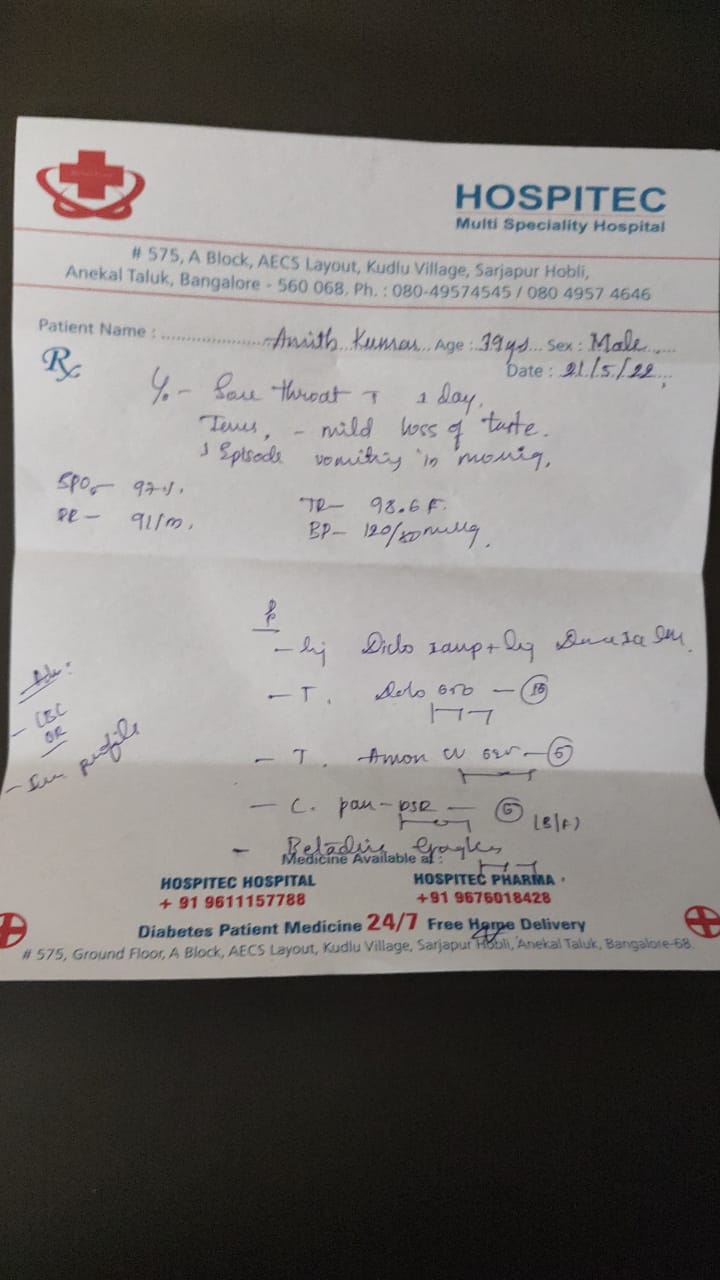 HOSPITEC
Multi Speciality Hospital
# 575, A Block, AECS Layout, Kudlu Village, Sarjapur Hobli,
Anekal Taluk, Bangalore - 560 068. Ph. : 080-49574545 / 080 4957 4646
Patient Name : Kumar Age : 39ys Sex : Male
Rx
Date : 21/5/22
- Sore throat 1 day.
- mild loss of taste.
1 Episode vomiting in
SPO2 - 97%. TR - 98.6 F.
PR - 91/m. BP - 120/80 mmHg.
- Inj Diclo 1amp + Inj
Adv :
- T. Dolo 650 - 15
- CBC
OR
- T. CV 625 - 5
- profile
- C. pan-DSR - 5 (B/F)
- Betadine Gargles
Medicine Available at :
HOSPITEC HOSPITAL HOSPITEC PHARMA
+ 91 9611157788 +91 9676018428
Diabetes Patient Medicine 24/7 Free Home Delivery
# 575, Ground Floor, A Block, AECS Layout, Kudlu Village, Sarjapur Hobli, Anekal Taluk, Bangalore-68.